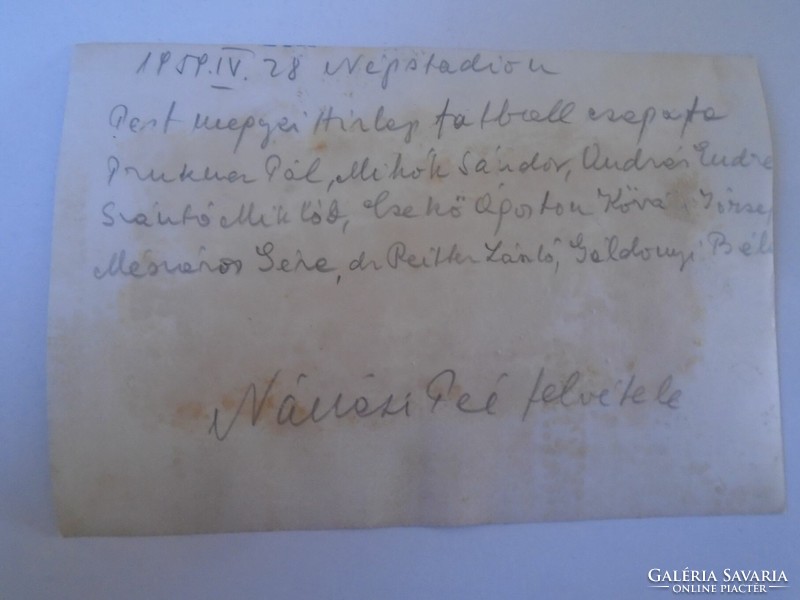 1959.IV.28 Népstadion
Pest megyei Hirlap fatball csapata
Prukner Pál, Mihók Sándor, András Endre
Szántó Miklós, Csekő Ágoston Józse
Mészáros Géza, dr Reitter László, Gáldonyi Béla
felvétele
GALÉRIA SAVARIA
ONLINE PIACTÉR